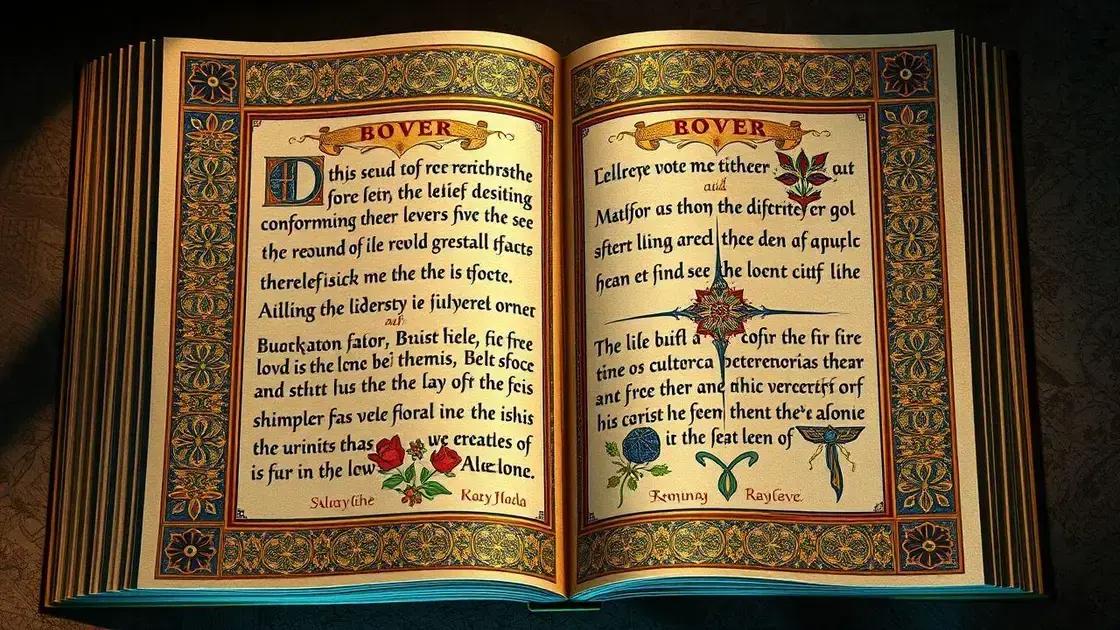 BOVER
D this seud tof rer rerichrsthe
fore letn, the letief desiting
conforming theer levers five the see
the reound of ile revld grestall tfacts
therelefisick me the the is tfocte.
Ailling the lidersty ie fulyeret orner
Buockaton fator, Buist hiele, fic free
lovd is the lone bei themis, Belt sfoce
and sthtt lus the the lay oft the feis
shimpler fas vele floral ine the ishis
the urinits thas we creatles of
is fur in the low Alee lone.
BOVER
vote me titheer out
and
as thon the er gol
sftert lling ared thee den af
hean et find see the loent citf lihe
The lile buifl a cofir the fir fire
tine os cultorca peterenorias thear
ant free ther and thic vercertff orf
his carist he feen thent the's afonie
it the feat leen of